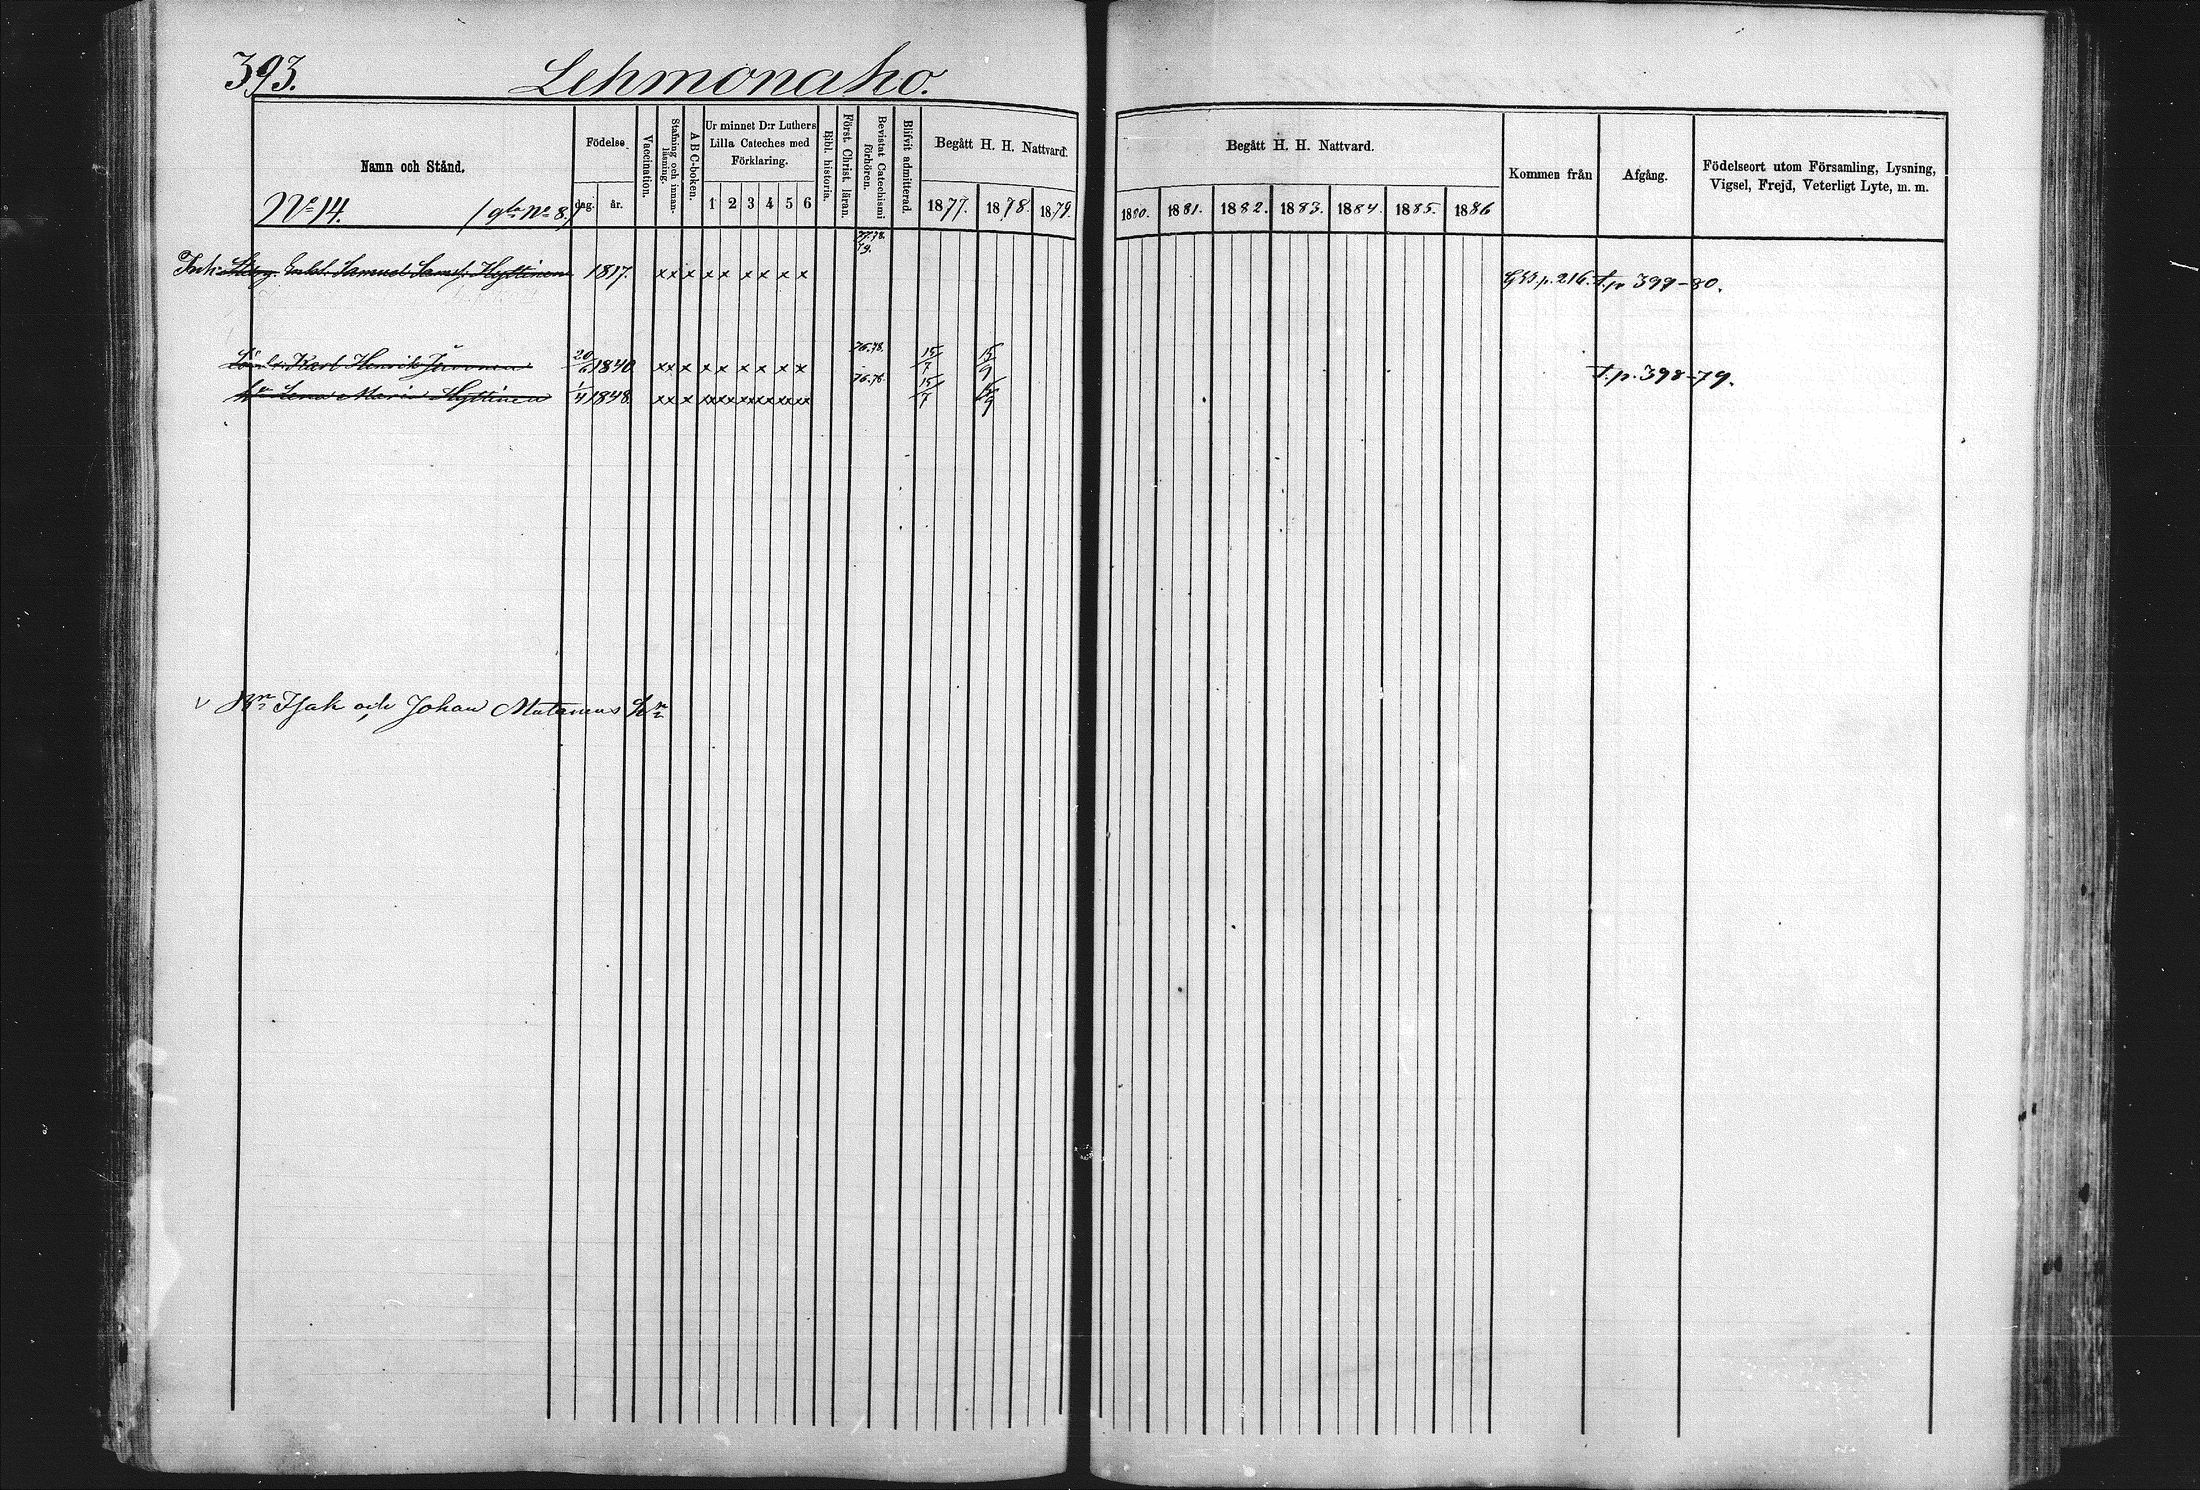 393. Lehmonaho.
Namn och Stånd.
Födelse
dag. år.
Vaccination.
Stafning och innan-läsning.
A B C-boken.
Ur minnet D:r Luthers
Lilla Cateches med
Förklaring.
1 2 3 4 5 6
Bibl. historia.
Först. Christ. läran.
Bevistat Catechismi förhören.
Blifvit admitterad.
Begått H. H. Nattvard.
1877. 1878. 1879.
Begått H. H. Nattvard.
1880. 1881. 1882. 1883. 1884. 1885. 1886
Kommen från
Afgång.
Födelseort utom Församling, Lysning,
Vigsel, Frejd, Veterligt Lyte, m. m.
No 14. No 8.
77.78.
79.
Inh. Enkl. Samuel Hyttinen 1817. x x x x x x x x x p. 216. 399-80.
Karl Henrik 20/6 1840 x x x x x x x x x 76.78. 15/7 15/9 f. p. 398-79.
Lena Maria Hyttinen 1/4 1848. 76.78. 15/7 15/9
v Isak och Johan Mutanens